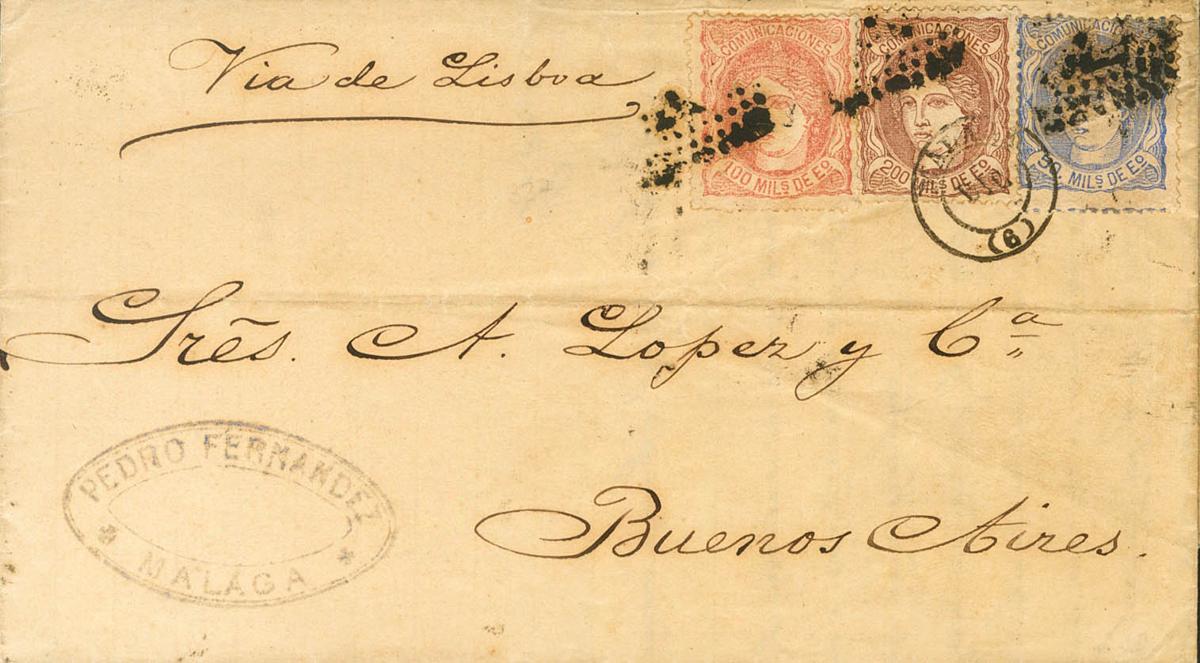 Via de Lisboa
COMUNICACIONES
100 MILS DE Eº
COMUNICACIONES
200 MILS DE Eº
COMUNICACIONES
50 MILS DE Eº
(6)
Srẽs. A. Lopez y Cª
PEDRO FERNANDEZ
MALAGA
Buenos Aires.